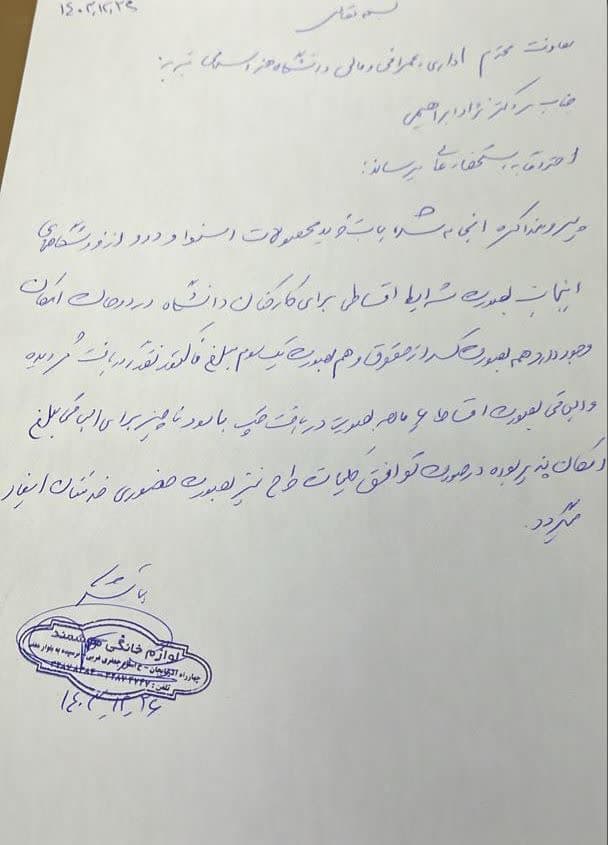 بسمه تعالی
۱۴۰۲,۱۲,۲۶
معاونت محترم اداری، عمرانی و مالی دانشگاه هنر اسلامی تبریز
جناب دکتر نژاد ابراهیمی
احتراماً به استحضار عالی میرساند:
پیرو مذاکره انجام شده بابت خرید محصولات اسنوا و دوو از فروشگاههای
اینجانب بصورت شرایط اقساطی برای کارکنان دانشگاه در دو حالت امکان
وجود دارد هم بصورت کسر از حقوق و هم بصورت یک سوم مبلغ فاکتور نقد دریافت گردیده
و الباقی بصورت اقساط ماهه بصورت دریافت چک با سود ناچیز برای الباقی مبلغ
امکان پذیر بوده در صورت توافق کلیات طرح نیز بصورت حضوری خدمتتان ایفاد
میگردد.
با تشکر
لوازم خانگی هوشمند
چهارراه آذربایجان
تلفن:
۱۴۰۲,۱۲,۲۶